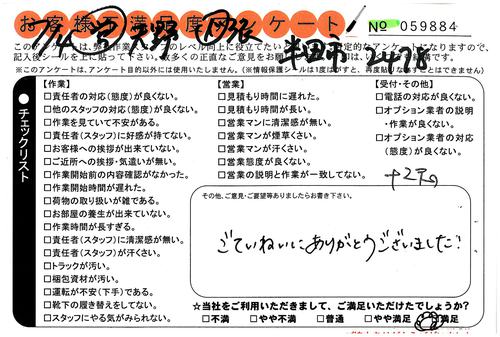 お客様不満足度アンケート！
№ 059884
半田市 2478
※このアンケートは、アンケート目的以外には使用いたしません。（※情報保護シールは1度はがすと、再度貼りなおすことはできません）
チェックリスト
【作業】
□責任者の対応（態度）が良くない。
□他のスタッフの対応（態度）が良くない。
□作業を見ていて不安がある。
□責任者（スタッフ）に好感が持てない。
□お客様への挨拶が出来ていない。
□ご近所への挨拶・気遣いが無い。
□作業開始前の内容確認がなかった。
□作業開始時間が遅れた。
□荷物の取り扱いが雑である。
□お部屋の養生が出来ていない。
□作業時間が長すぎる。
□責任者（スタッフ）に清潔感が無い。
□責任者（スタッフ）が汗くさい。
□トラックが汚い。
□梱包資材が汚い。
□運転が不安（下手）である。
□靴下の履き替えをしてない。
□スタッフにやる気がみられない。
【営業】
□見積もり時間に遅れた。
□見積もり時間が長い。
□営業マンに清潔感が無い。
□営業マンが煙草くさい。
□営業マンが汗くさい。
□営業態度が良くない。
□営業の説明と作業が一致してない。
【受付・その他】
□電話の対応が良くない。
□オプション業者の説明
・作業が良くない。
□オプション業者の対応
（態度）が良くない。
その他、ご意見・ご要望等ありましたらお書き下さい。
ごていねいにありがとうございました！
☆当社をご利用いただきまして、ご満足いただけたでしょうか？
□不満 □やや不満 □普通 □やや満足 満足